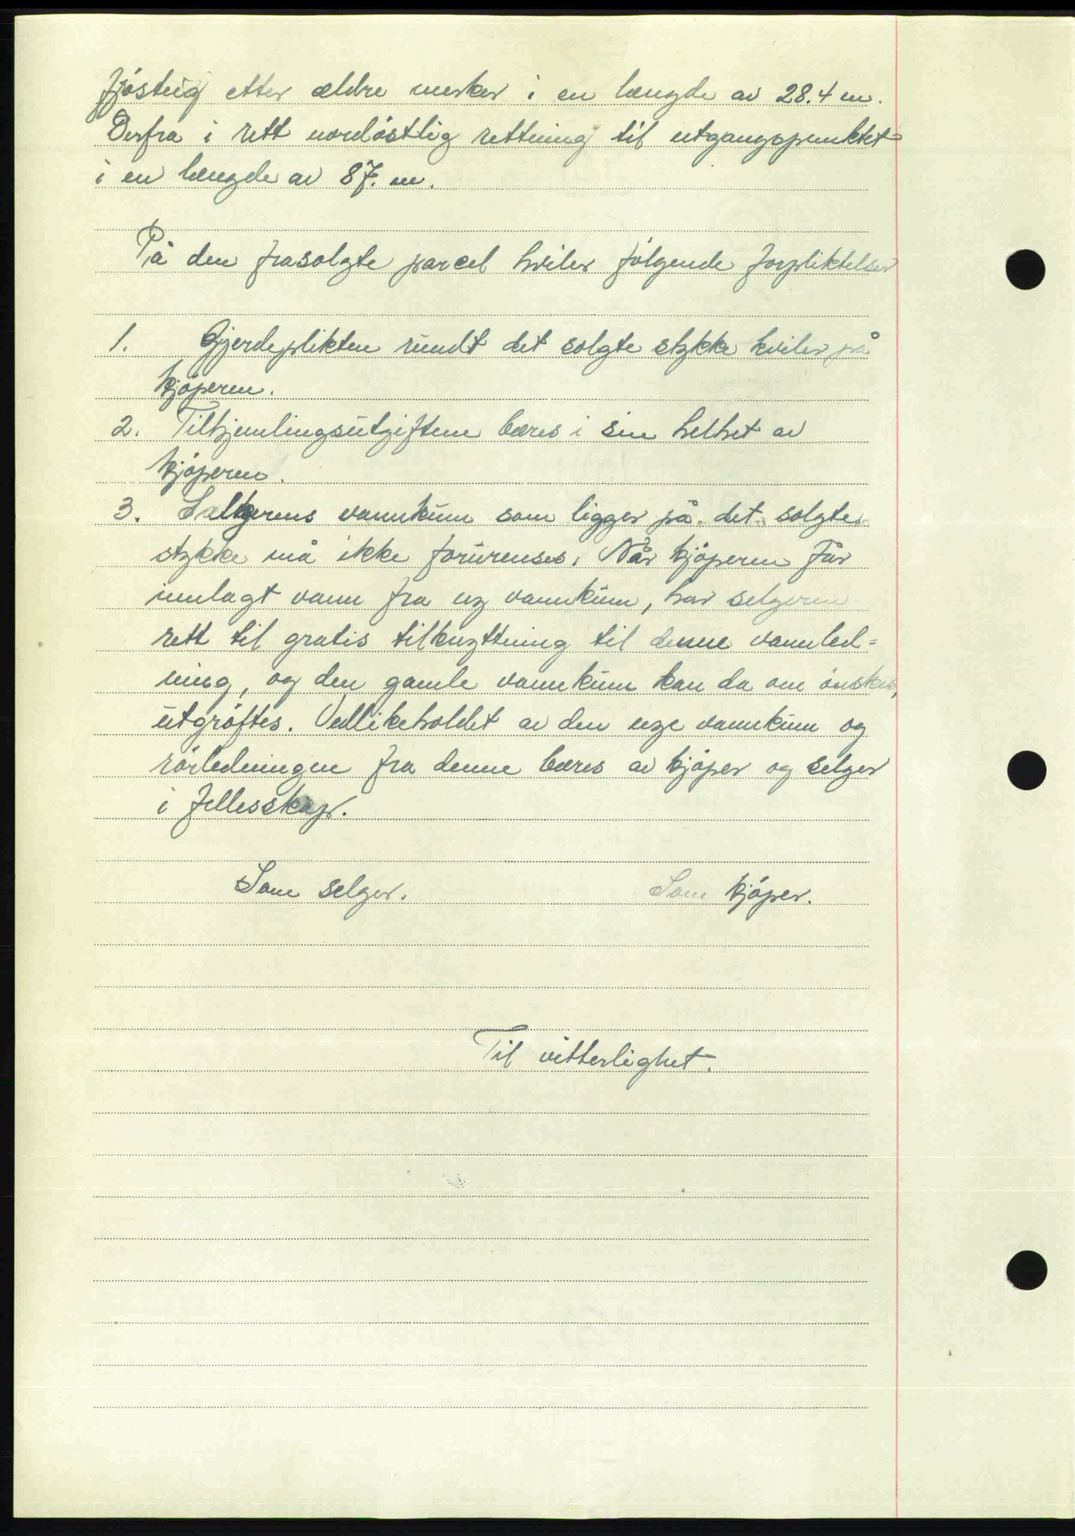 fjøsteig etter ældre merker i en længde av 28.4 m.
Derfra i rett nordøstlig rettning til utgangspunktet
i en længde av 87. m.
På den frasolgte parcel hviler følgende forpliktelser
1. Gjerdeplikten rundt det solgte stykke hviler på
kjøperen.
2. Tilhjemlingsutgiftene bæres i sin helhet av
kjøperen.
3. Selgerens vannkum som ligger på det solgte
stykke må ikke forurenses. Når kjøperen får
innlagt vann fra ny vannkum, har selgeren
rett til gratis tilknyttning til denne vannled=
ning, og den gamle vannkum kan da om ønskes,
utgrøftes. Vedlikeholdet av den nye vannkum og
rørledningen fra denne bæres av kjøper og selger
i fellesskap.
Som selger. Som kjøper.
Til vitterlighet.